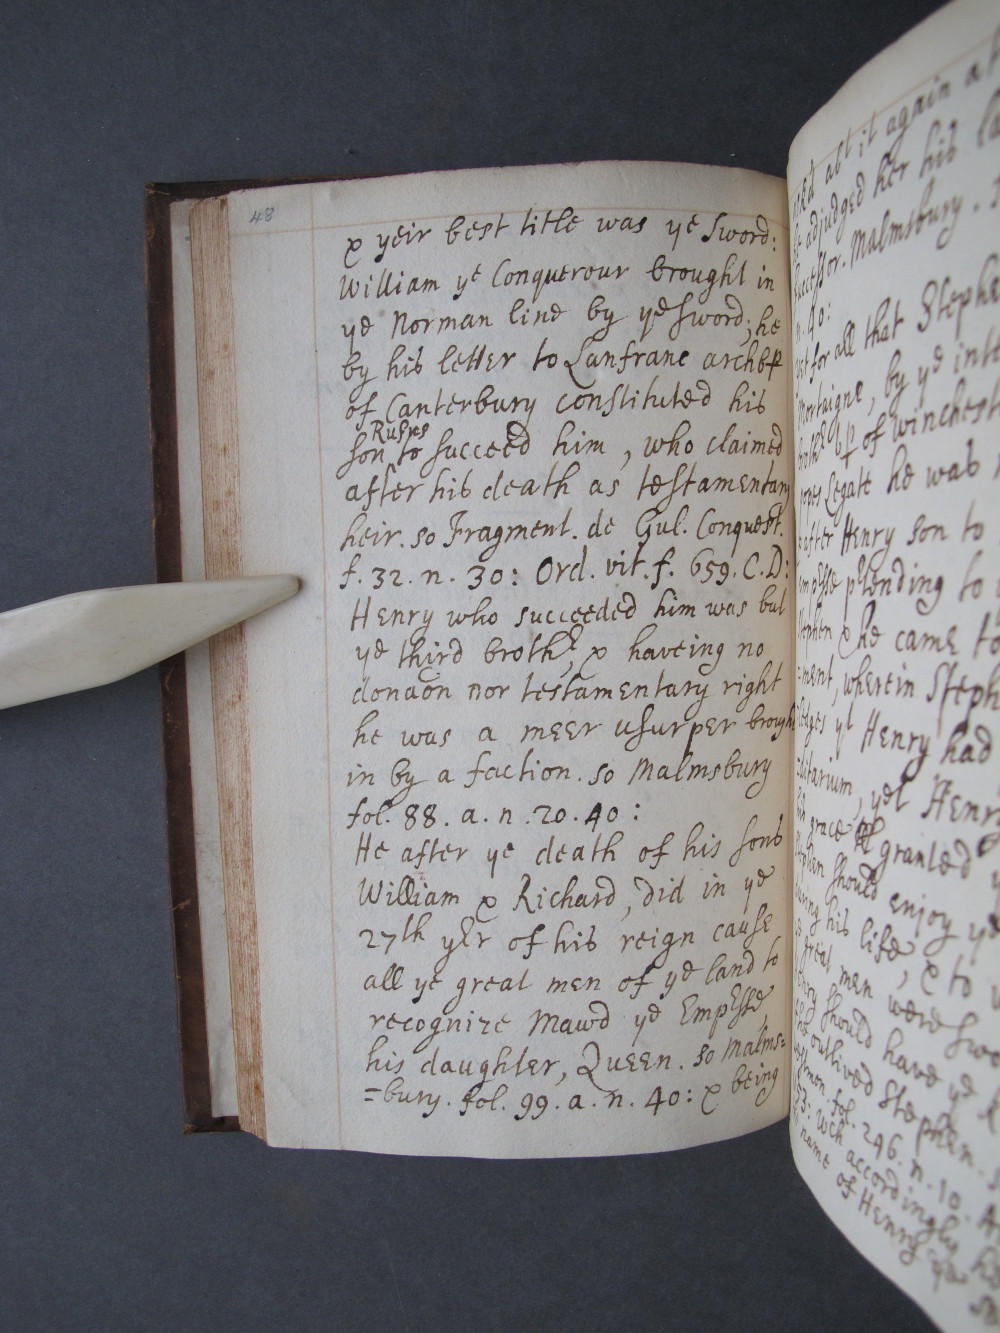 48
& yeir best title was ye sword:
William ye Conquerour brought in
ye Norman line by ye sword; he
by his letter to Lanfranc archbp
of Canterbury constituted his
Rufus
son to succeed him, who claimed
after his death as testamentary
heir. so Fragment. de Gul. Conquest.
f. 32. n. 30: Ord. vit. f. 659. C.D:
Henry who succeeded him was but
ye third brothr, & haveing no
donaon nor testamentary right
he was a meer usurper brought
in by a faction. so Malmsbury
fol. 88. a. n. 20. 40:
He after ye death of his sons
William & Richard, did in ye
27th yer of his reign cause
all ye great men of ye land to
recognize Mawd ye Empesse,
his daughter, Queen. so Malms=
=bury. fol. 99. a. n. 40: & being
it again at
he adjudged her his
successor. Malmsbury.
n. 40:
for all that Stephen
Mortaigne, by ye
brothr bp of
popes Legate he was
after Henry son to
Empesse ptending to
Stephen & he came to
=ment, wherein
yt Henry had
yet Henry
his grace granted
Stephen should enjoy ye
during his life, & to
great men were
Henry should have ye
outlived Stephen.
fol. 246. n. 10.
wch accordingly he
name of Henry ye